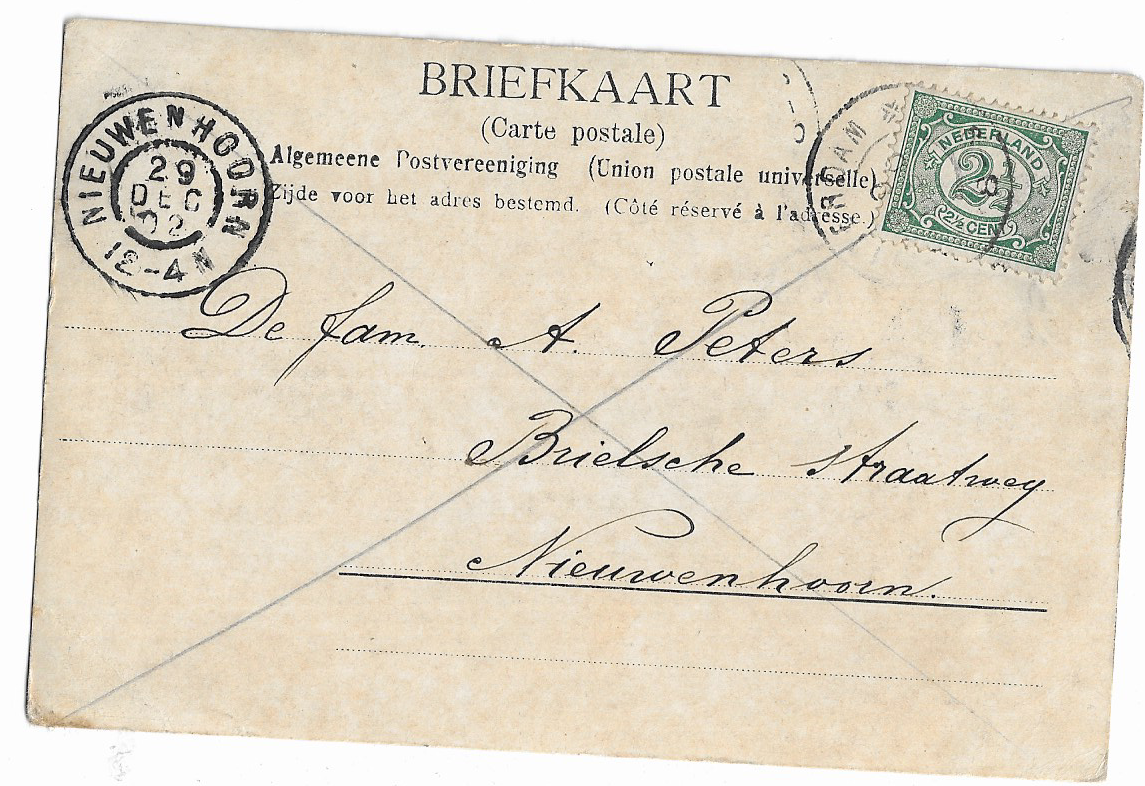 BRIEFKAART
(Carte postale)
Algemeene Postvereeniging (Union postale universelle)
Zijde voor het adres bestemd. (Côté réservé à l'adresse.)
NIEUWENHOORN
29
DEC
02
12-4N
RDAM
NEDERLAND
2½
2½ CENT
De fam. A. Peters
Brielsche straatweg
Nieuwenhoorn.